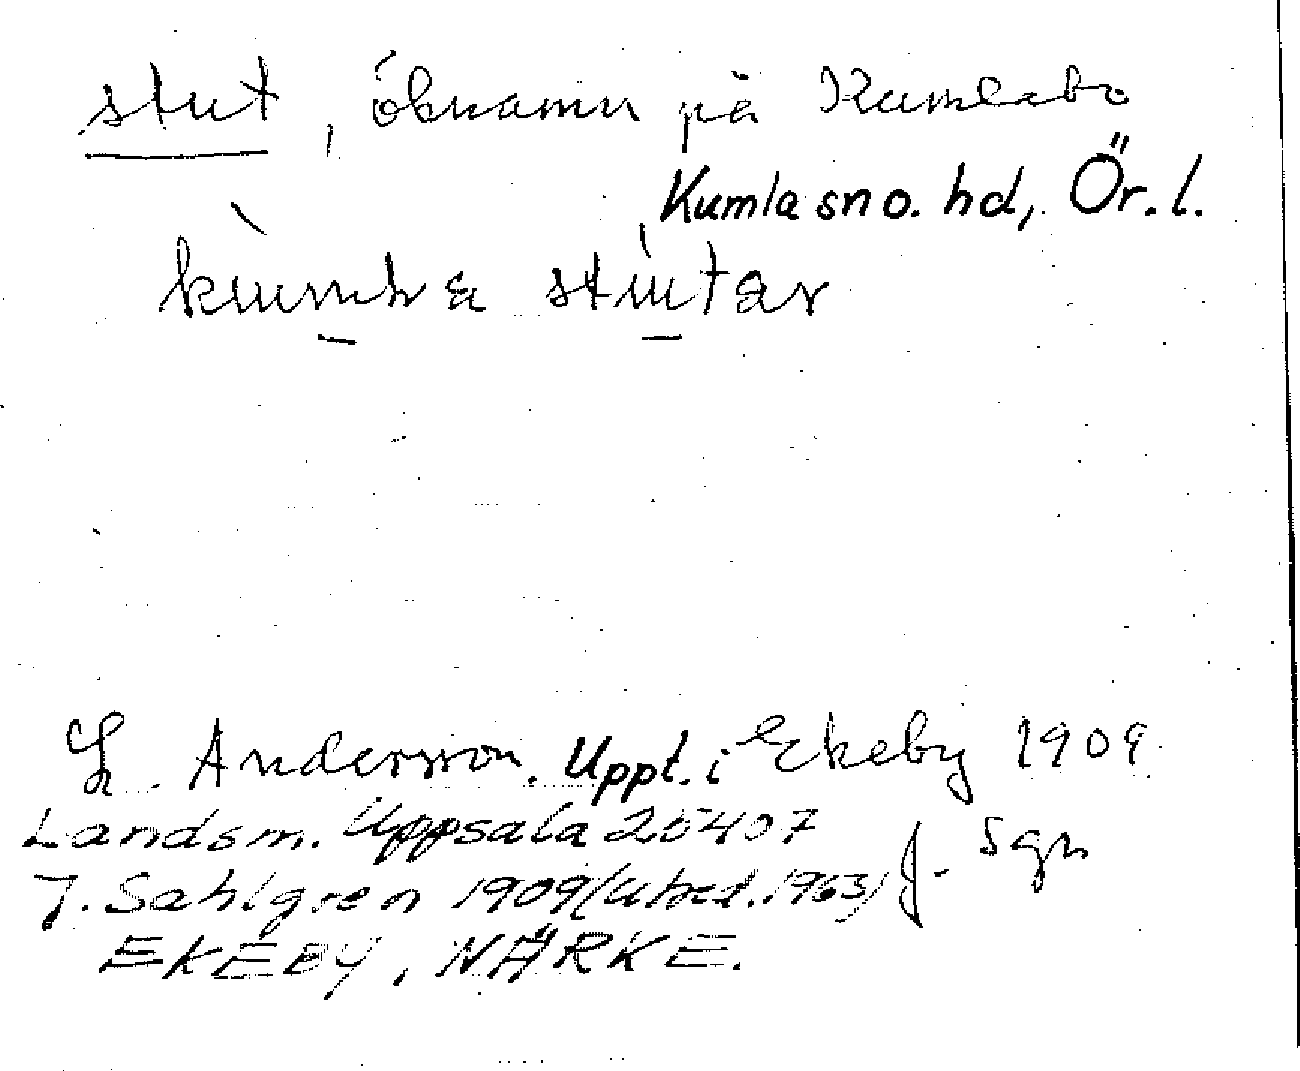 stut, öknamn på Kumlabo
Kumla sn o. hd, Ör. l.
kumla stutar
L. Andersson. Uppt. i Ekeby 1909
Landsm. Uppsala 25407
J. Sgn
J. Sahlgren 1909 (utred. 1963)
EKEBY, NÄRKE.